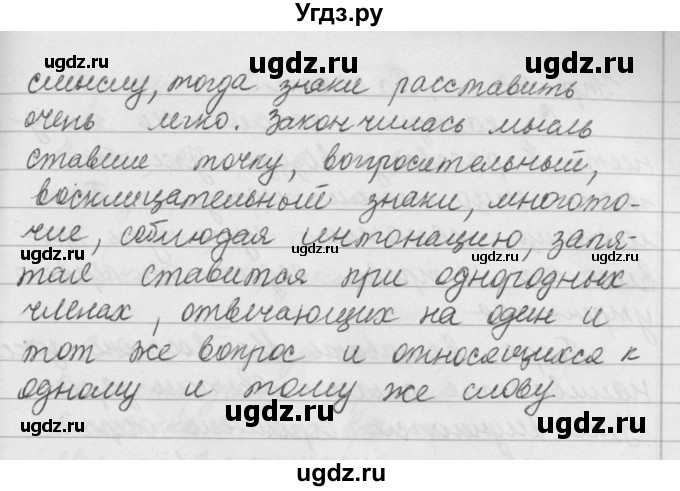 Угдз.ру
ugdz.ru ugdz.ru ugdz.ru
смыслу, тогда знаки расставить
очень легко. Закончилась мысль
ugdz.ru
ставше точку, вопросительный,
восклицательный знаки, многото-
чие, соблюдая интонацию, запя-
ugdz.ru ugdz.ru
тая ставится при однородных
членах, отвечающих на один и
ugdz.ru ugdz.ru ugdz.ru
тот же вопрос и относящихся к
одному и тому же слову
ugdz.ru ugdz.ru ugdz.ru
ugdz.ru